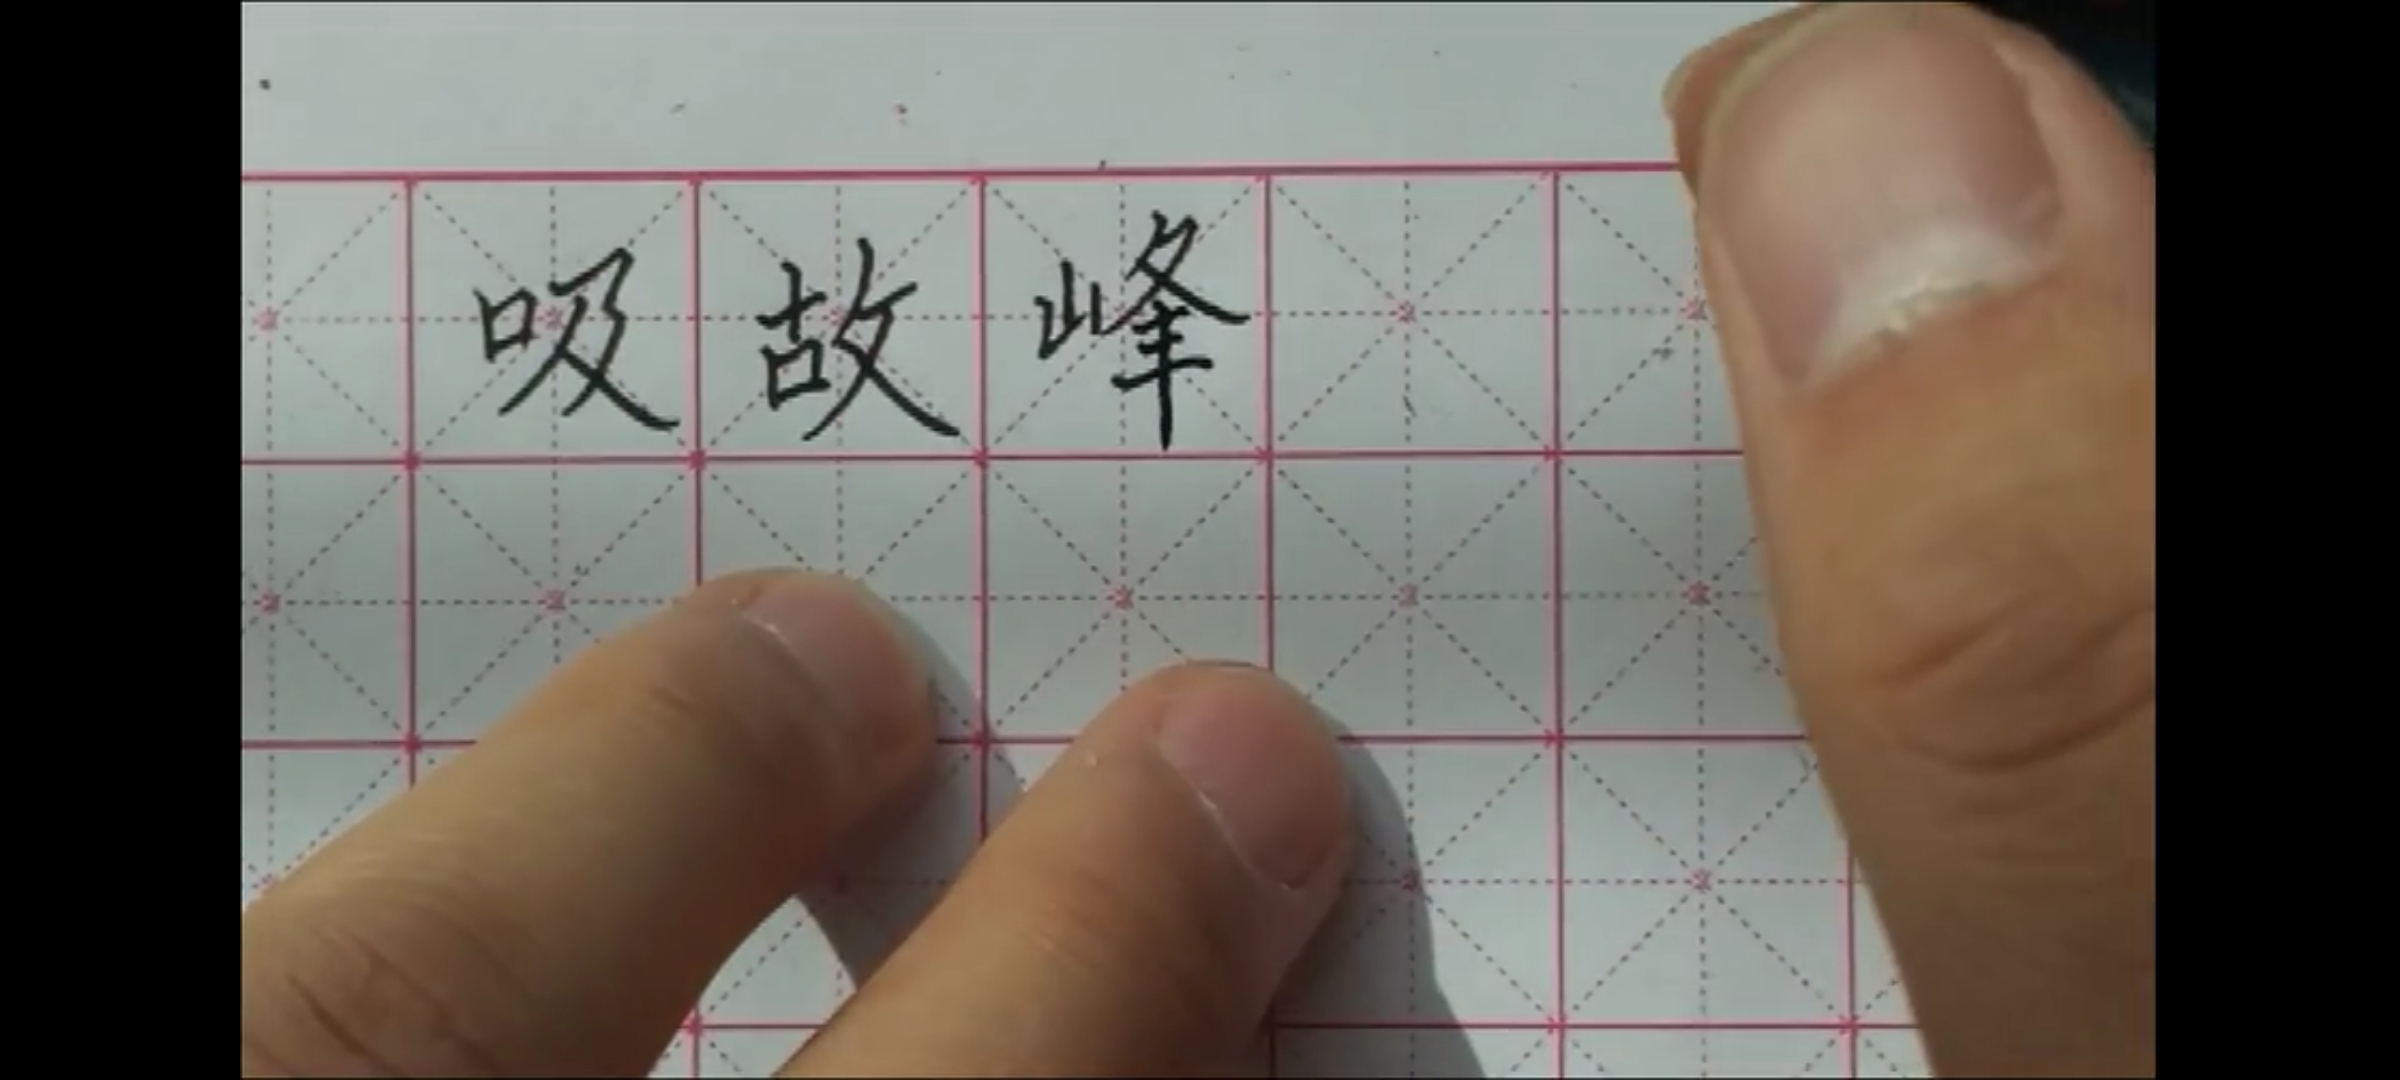 吸故峰